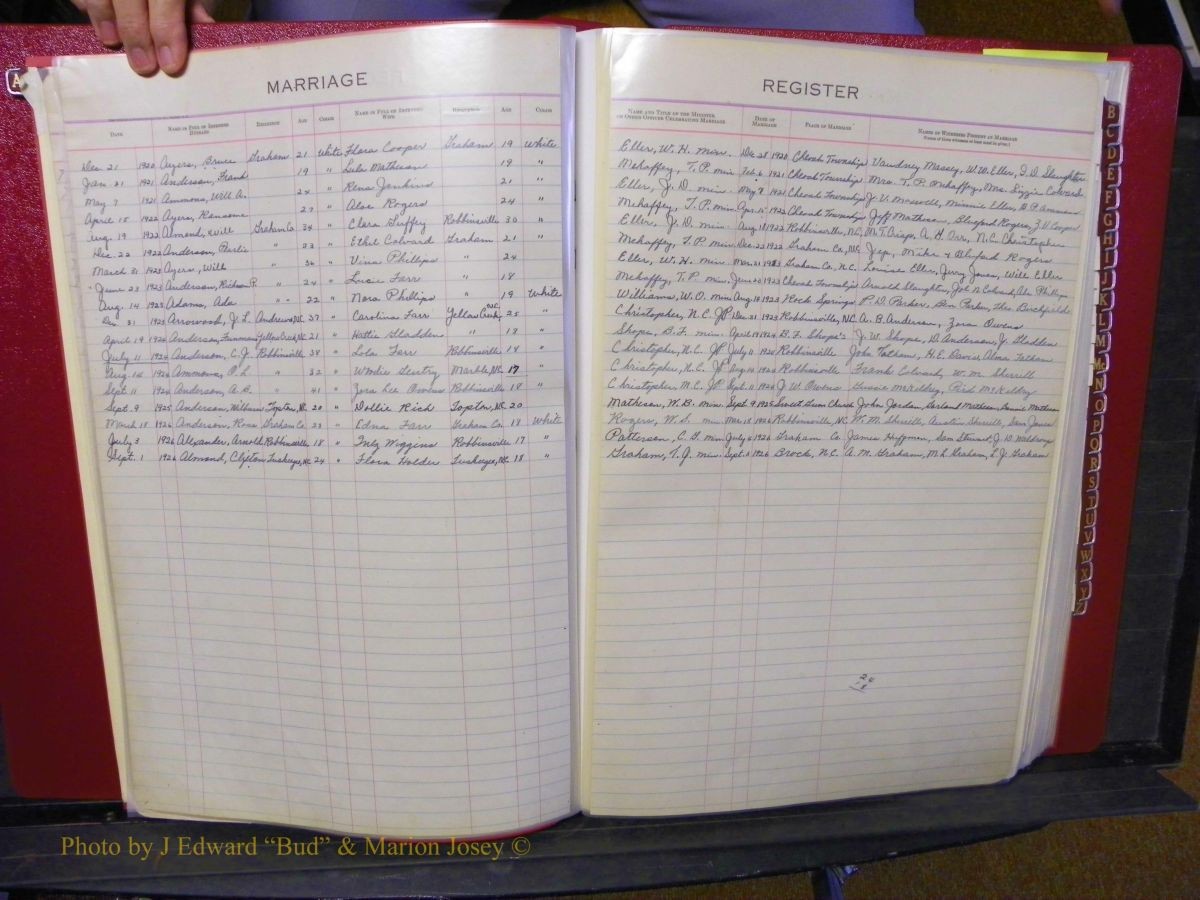 A
MARRIAGE
REGISTER
DATE NAME IN FULL OF INTENDED HUSBAND RESIDENCE AGE COLOR NAME IN FULL OF INTENDED WIFE RESIDENCE AGE COLOR
NAME AND TITLE OF THE MINISTER, OR OTHER OFFICER CELEBRATING MARRIAGE DATE OF MARRIAGE PLACE OF MARRIAGE NAMES OF WITNESSES PRESENT AT MARRIAGE
Dec 21 1920 Ayers, Bruce Graham 21 White Flora Cooper Graham 19 White
Jan 31 1921 Anderson, Frank 19 " Lula Matheson 19 "
May 7 1921 Ammons, Will A. 24 " Rena Jenkins 21 "
April 15 1922 Ayers, Ransome 27 " Aloe Rogers 24 "
Aug. 19 1922 Almond, Will Graham Co 34 " Clara Guffey Robbinsville 30 "
Dec. 22 1922 Anderson, Partie " 23 " Ethel Colvard Graham 21 "
March 31 1923 Ayers, Will " 36 " Vina Phillips " 24
June 23 1923 Anderson, " 24 " Lucie Farr " 18
Aug. 14 1923 Adams, Ada " 22 " Nora Phillips " 19 White
Dec 31 1923 Arrowood, J. L. Andrews NC 37 " Carolina Farr Yellow Creek, N.C. 25 "
April 19 1924 Anderson, Yellow Creek, NC 21 " Hattie Gladden " 19 "
July 11 1924 Anderson, C. J. Robbinsville 38 " Lola Farr Robbinsville 18 "
Aug. 16 1924 Ammons, P. L. " 32 " Gentry Marble, NC 17 "
Sept 11 1924 Anderson, A. B. " 41 " Zora Lee Owens Robbinsville 18 "
Sept. 9 1925 Anderson, William Topton, NC 20 " Dollie Rich Topton, NC 20
March 18 1926 Anderson, Ross Graham Co. 23 " Edna Farr Graham Co. 18 White
July 3 1926 Alexander, Arnold Robbinsville 18 " Inly Wiggins Robbinsville 17 "
Sept. 1 1926 Almond, Clifton Tuskegee, NC 24 " Flora Holder Tuskegee, NC 18 "
Eller, W. H. min. Dec 28 1920 Cheoah Township Vaudney Massey, W. W. Eller, D. D. Slaughter
Mehaffey, T. P. min Feb. 6 1921 Cheoah Township Mrs. T. P. Mehaffey, Mrs. Lizzie Colvard
Eller, J. D. min. May 8 1921 Cheoah Township J. V. Maxwell, Minnie Ellen, B. P. Ammons
Mehaffey, T. P. min. Apr. 15 1922 Cheoah Township Jeff Matheson, Bluford Rogers, J. V. Cooper
Eller, J. D. min. Aug. 19 1922 Robbinsville, NC M. T. Crisp, A. H. Orr, N. C. Christopher
Mehaffey, T. P. min. Dec. 22 1922 Graham Co, NC Jep, Mike & Bluford Rogers
Eller, W. H. min. Mar. 31 1923 Graham Co, N.C. Louise Eller, Jerry Jones, Will Eller
Mehaffey, T. P. min. June 23 1923 Cheoah Township Arnold Slaughter, Joe N. Colvard, Phillips
Williams, W. O. min. Aug 18 1923 Rock Springs P. D. Parker, Parker, Tho. Birchfield
Christopher, N. C. JP Dec 31 1923 Robbinsville, NC A. B. Anderson, Zora Owens
Shope, B. F. min. April 19 1924 B. F. Shope's J. W. Shope, D. Anderson, J. Gladden
Christopher, N. C. JP July 11 1924 Robbinsville John Tatham, H. E. Davis, Alma Tatham
Christopher, N. C. JP Aug 16 1924 Robbinsville Frank Colvard, W. M. Sherrill
Christopher, N. C. JP Sept. 11 1924 J. W. Owens Gussie McKeldry, Reid McKeldry
Matheson, W. B. min. Sept. 9 1925 Sweet Gum Church John Jordan, Garland Matheson, Bonnie Matheson
Rogers, W. S. min. Mar. 18 1926 Robbinsville, NC W. M. Sherrill, Austin Sherrill, Dan Jones
Patterson, C. G. min. July 4 1926 Graham Co James Hoffman, Dan Stewart, J. D. Waldroup
Graham, T. J. min. Sept. 1 1926 Brock, N.C. A. M. Graham, M. L. Graham, L. J. Graham
24
18
B
C
D
E
F
G
H
I
J
K
L
M
Mc
N
O
P
Q
R
S
T
U
V
W
X
Y
Z
Photo by J Edward “Bud” & Marion Josey ©